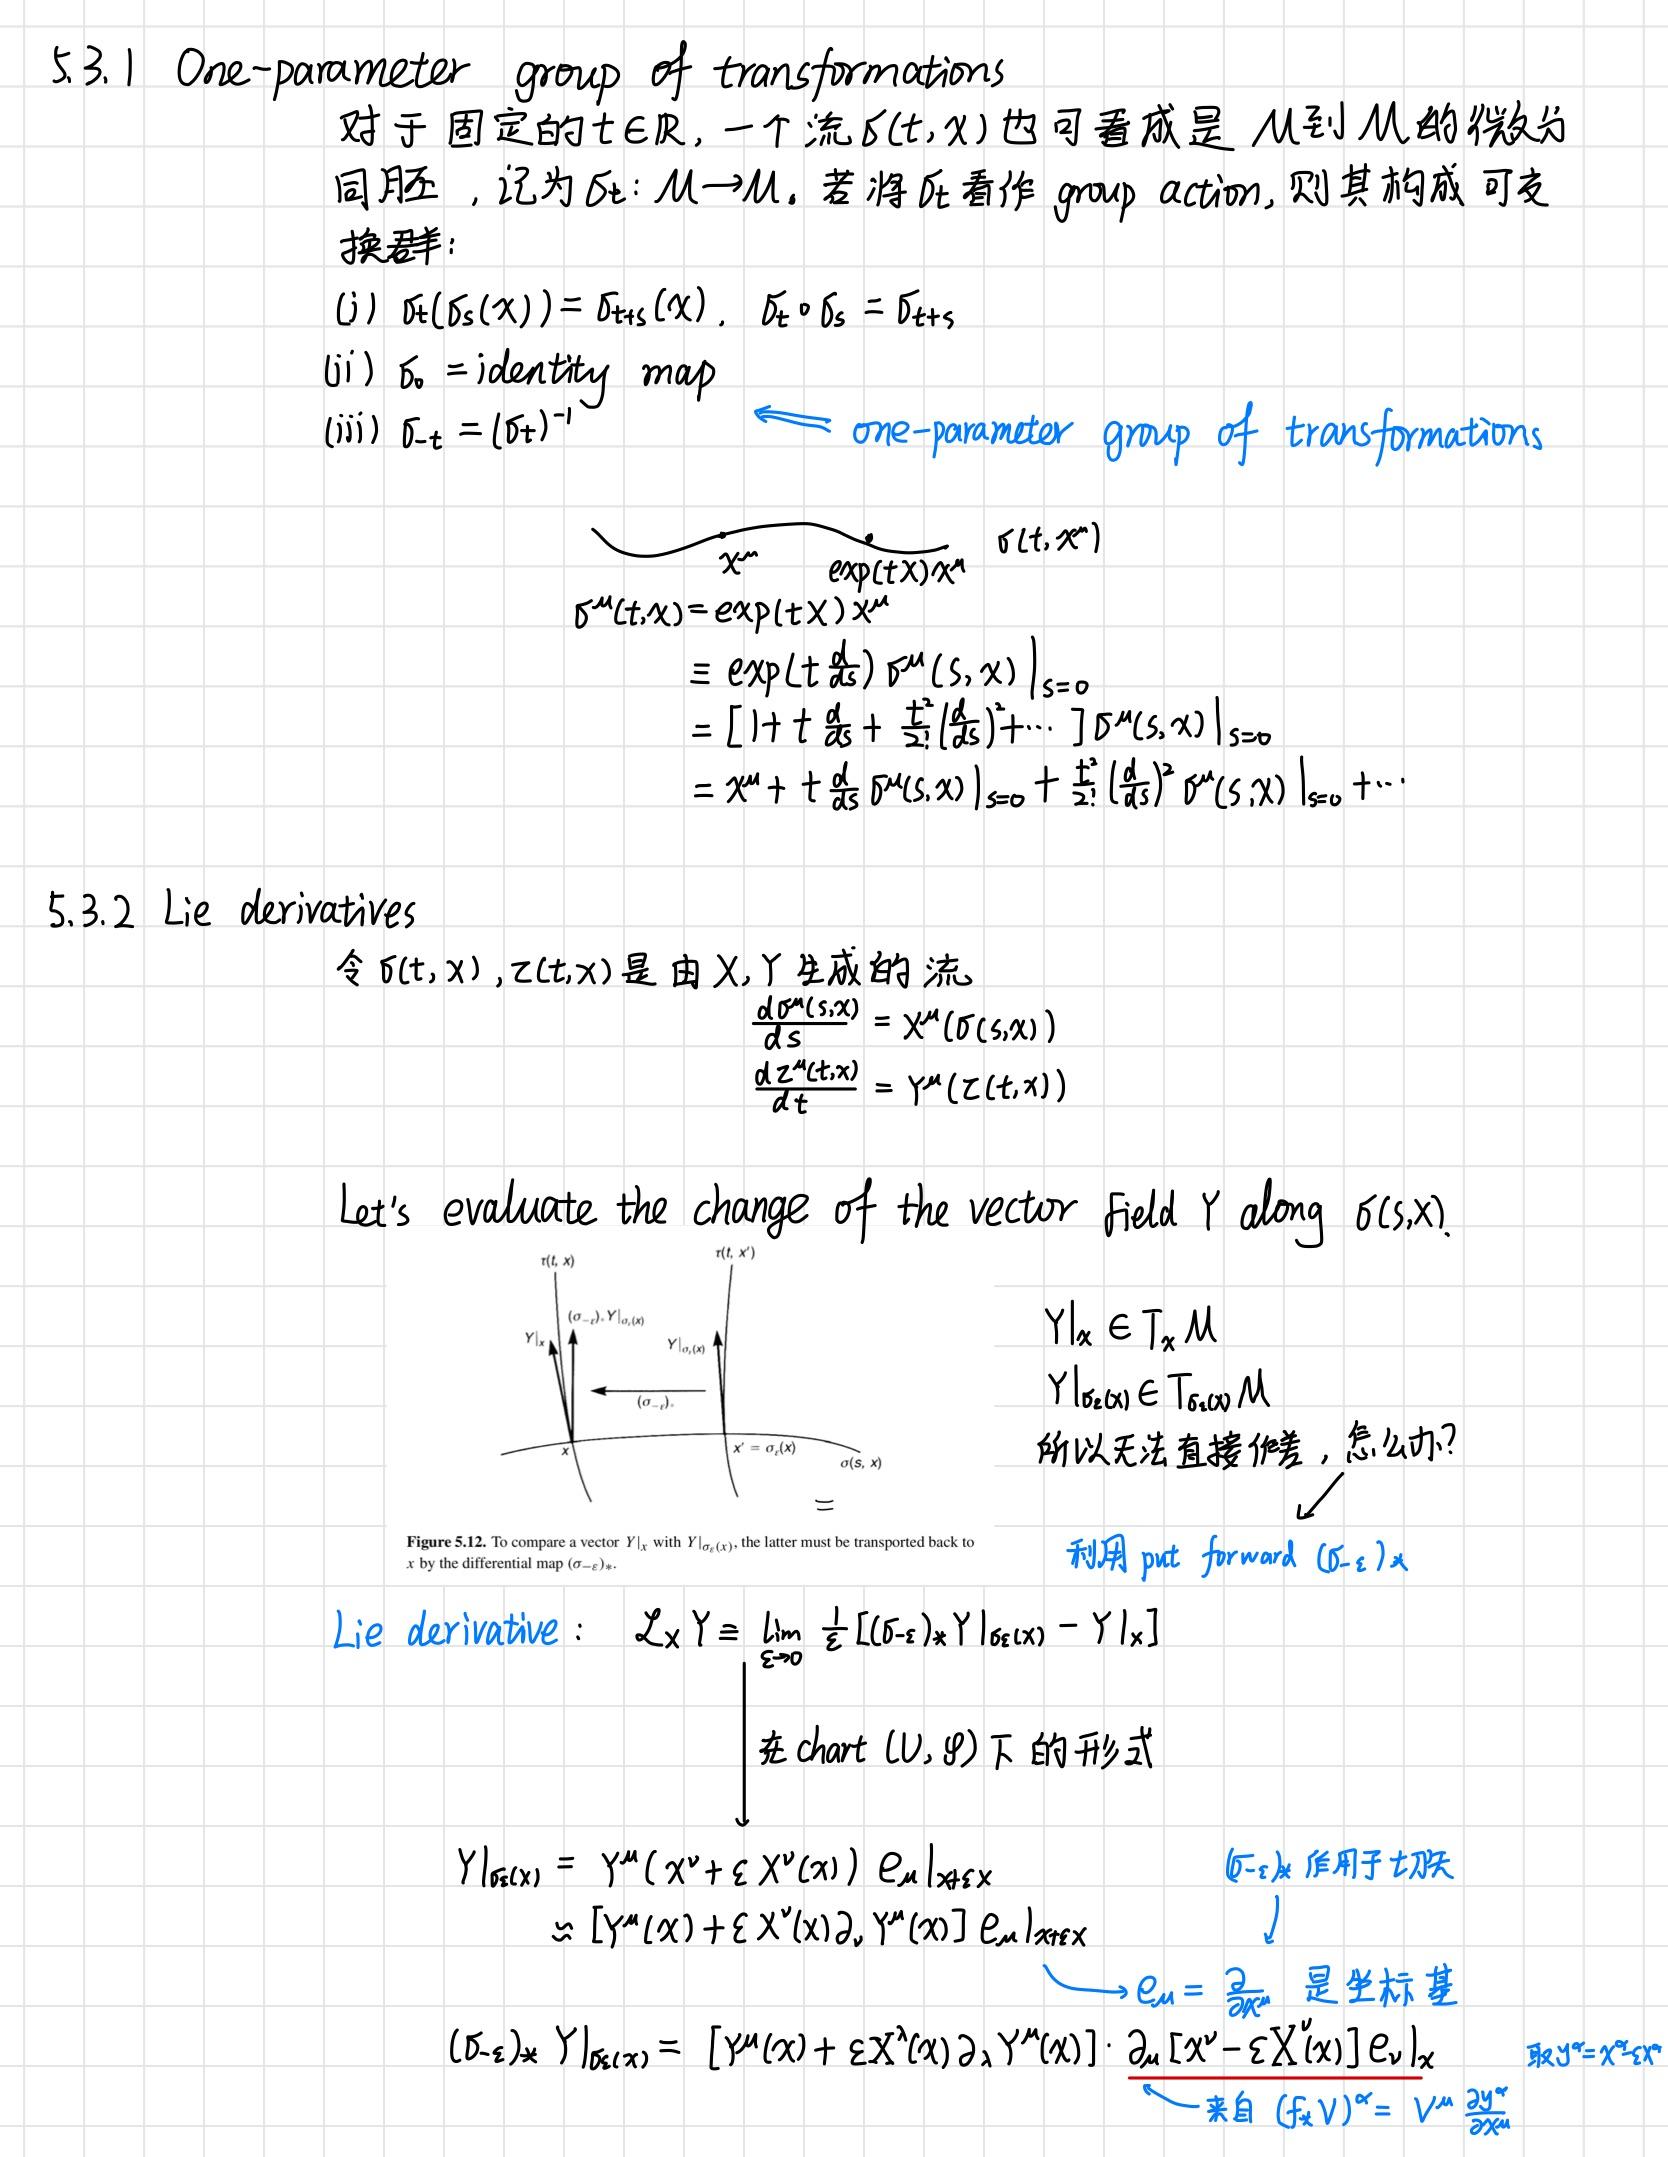 5.3.1 One-parameter group of transformations
对于固定的t∈ℝ, 一个流σ(t,x)也可看成是 M到M的微分
同胚，记为σₜ: M→M。若将σₜ看作 group action, 则其构成可交
换群:
(i) σₜ(σₛ(x)) = σₜ₊ₛ(x). σₜ∘σₛ = σₜ₊ₛ
(ii) σ₀ = identity map
(iii) σ₋ₜ = (σₜ)⁻¹
⇐ one-parameter group of transformations
x^μ exp(tX)x^μ σ(t,x^μ)
σ^μ(t,x) = exp(tX)x^μ
≡ exp(t d/ds) σ^μ(s,x)|_{s=0}
= [1 + t d/ds + t²/2! (d/ds)² + ⋯] σ^μ(s,x)|_{s=0}
= x^μ + t d/ds σ^μ(s,x)|_{s=0} + t²/2! (d/ds)² σ^μ(s,x)|_{s=0} + ⋯
5.3.2 Lie derivatives
令σ(t,x), τ(t,x)是由X,Y生成的流。
dσ^μ(s,x)/ds = X^μ(σ(s,x))
dτ^μ(t,x)/dt = Y^μ(τ(t,x))
Let's evaluate the change of the vector field Y along σ(s,x).
τ(t, x) τ(t, x')
(σ_{−ε})_* Y|_{σ_ε(x)}
Y|_x Y|_{σ_ε(x)}
(σ_{−ε})_*
x x' = σ_ε(x)
σ(s, x)
=
Figure 5.12. To compare a vector Y|_x with Y|_{σ_ε(x)}, the latter must be transported back to
x by the differential map (σ_{−ε})_*.
Y|_x ∈ T_x M
Y|_{σ_ε(x)} ∈ T_{σ_ε(x)} M
所以无法直接作差，怎么办?
利用 put forward (σ_{-ε})_*
Lie derivative: ℒ_X Y ≡ lim_{ε→0} 1/ε [(σ_{-ε})_* Y|_{σ_ε(x)} − Y|_x]
在 chart (U, φ) 下的形式
Y|_{σ_ε(x)} = Y^μ(x^ν + εX^ν(x)) e_μ|_{x+εX}
(σ_{-ε})_* 作用于切矢
≈ [Y^μ(x) + εX^ν(x)∂_ν Y^μ(x)] e_μ|_{x+εX}
e_μ = ∂/∂x^μ 是坐标基
(σ_{-ε})_* Y|_{σ_ε(x)} = [Y^μ(x) + εX^λ(x)∂_λ Y^μ(x)] · ∂_μ[x^ν − εX^ν(x)] e_ν|_x 取y^α = x^α − εX^α
来自 (f_* V)^α = V^μ ∂y^α/∂x^μ